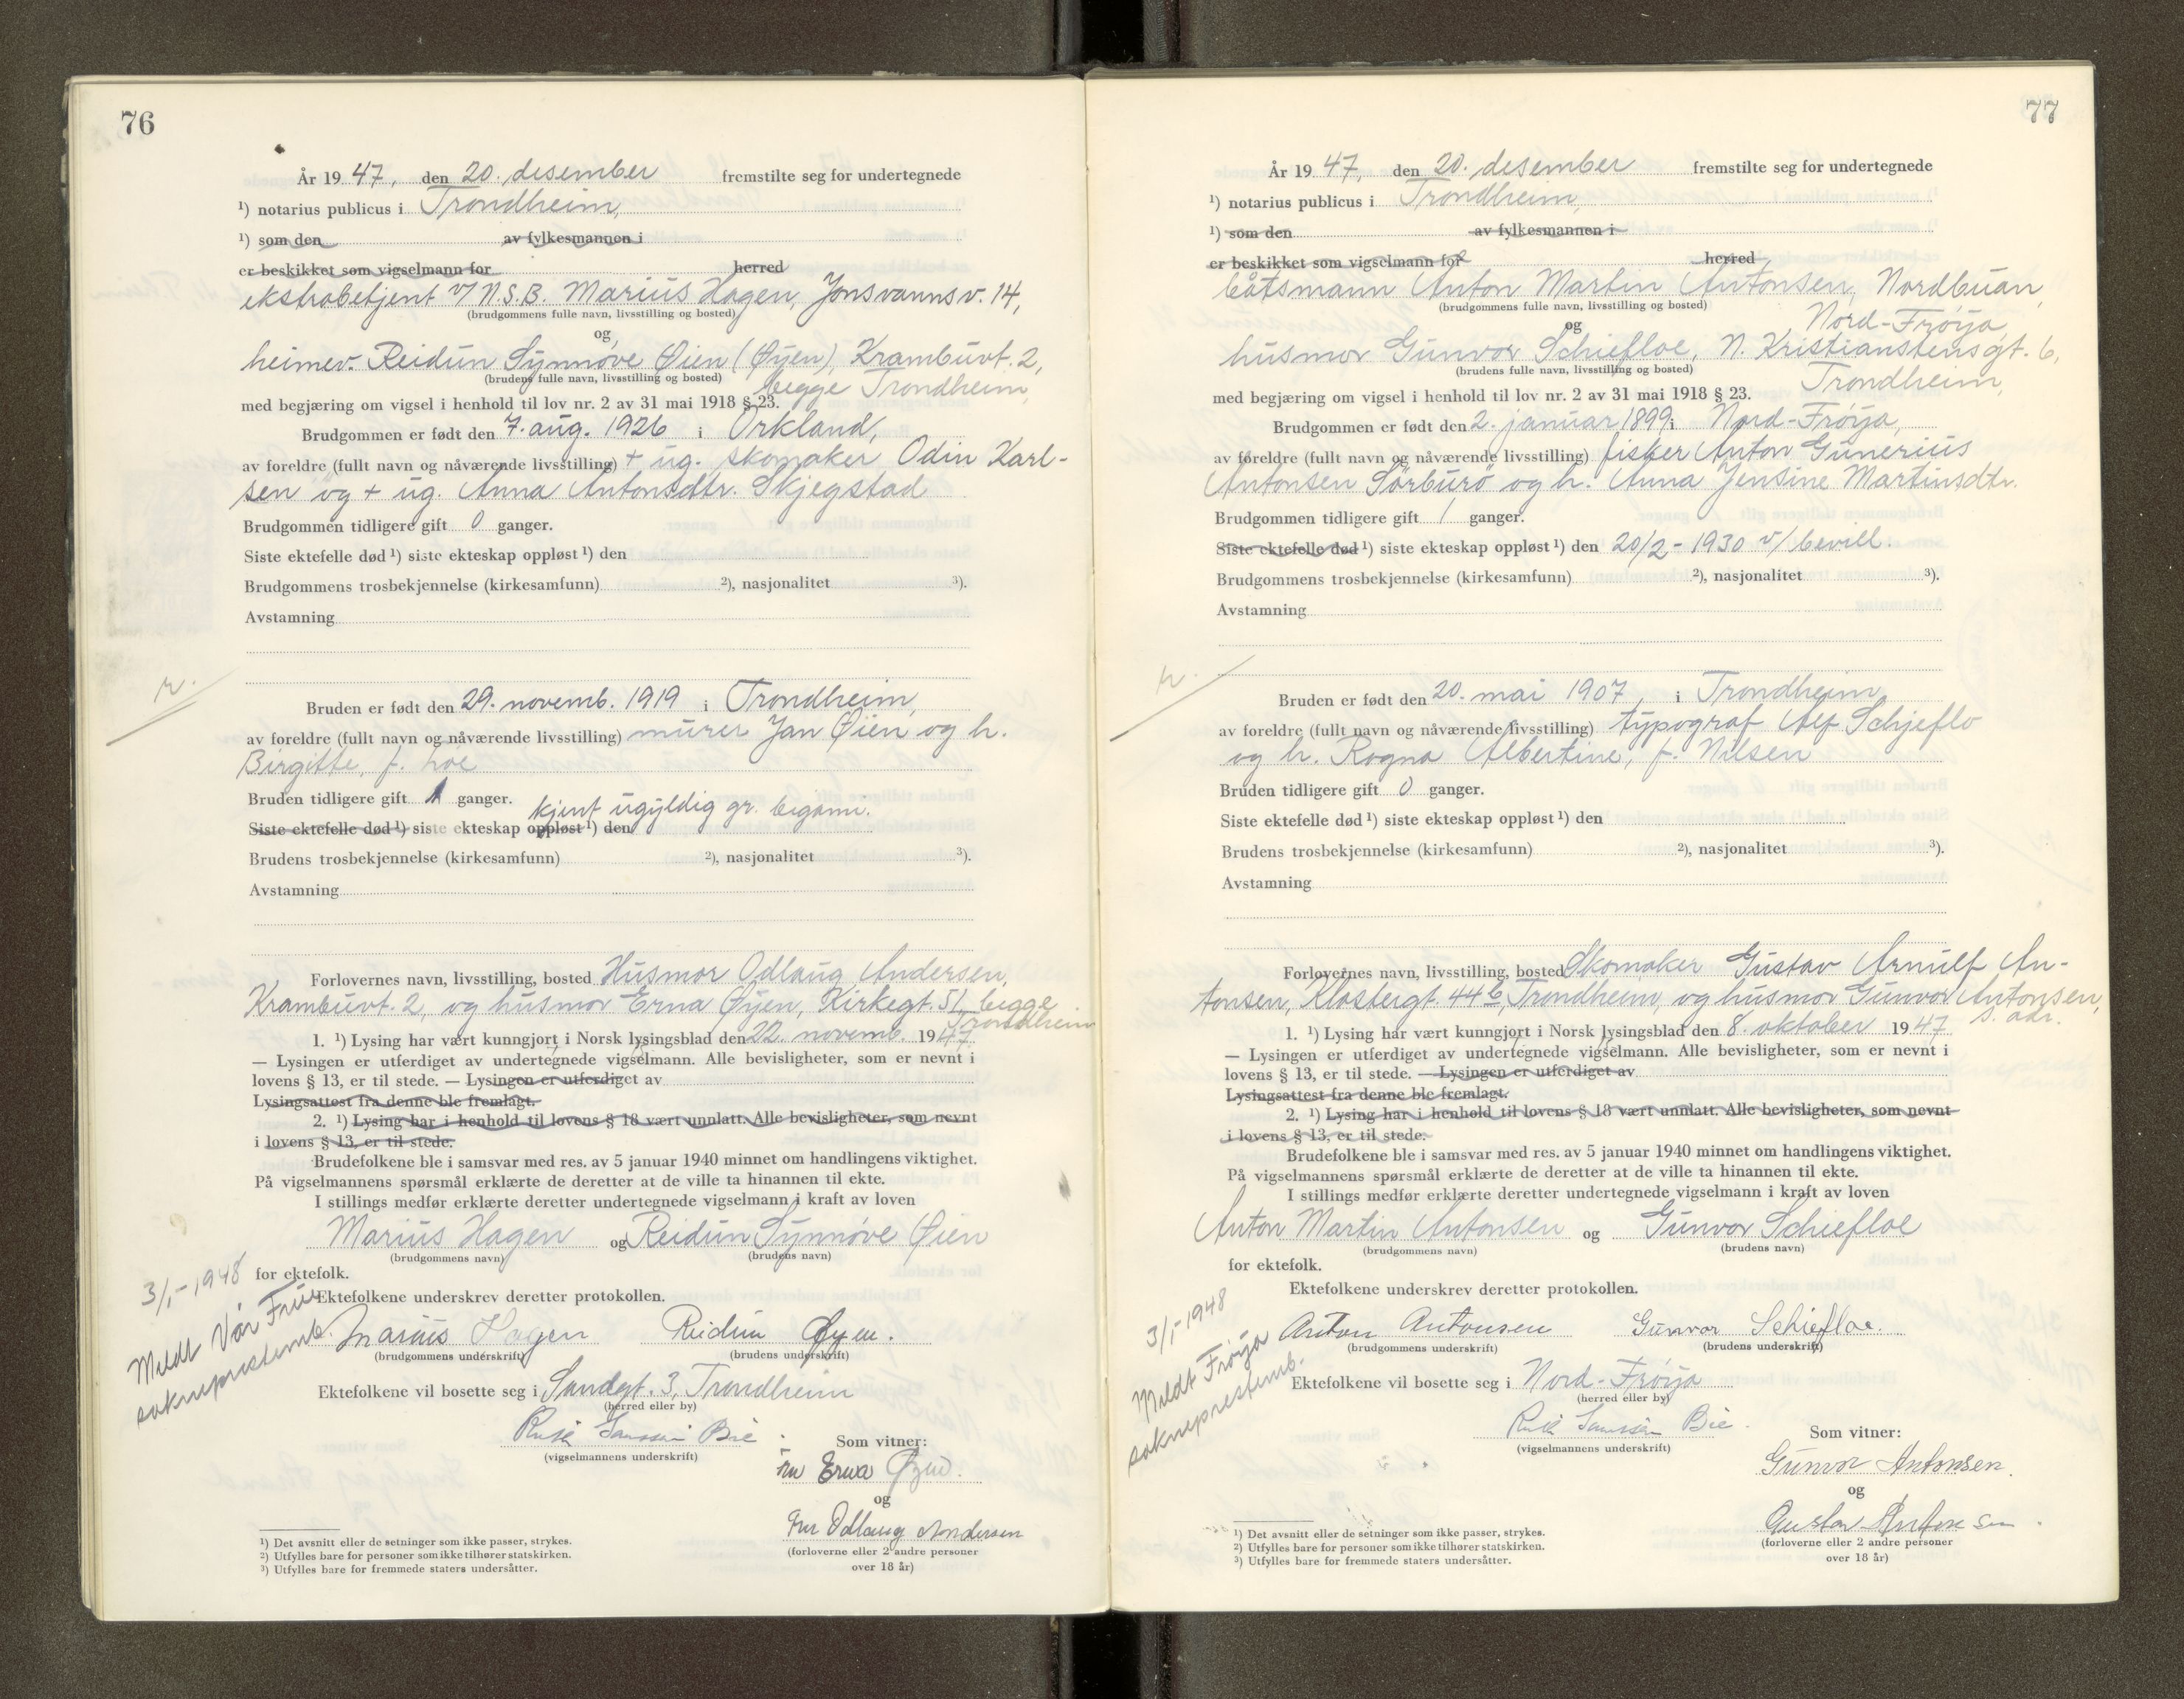 76
År 1947, den 20. desember fremstilte seg for undertegnede
¹) notarius publicus i Trondheim,
¹) som den av fylkesmannen i
er beskikket som vigselmann for herred
ekstrabetjent v/ N.S.B. Marius Hagen, Jonsvannsv. 14,
(brudgommens fulle navn, livsstilling og bosted)
og
heimev. Reidun Synnøve Øien (Øyen), Krambuvt. 2,
(brudens fulle navn, livsstilling og bosted) begge Trondheim,
med begjæring om vigsel i henhold til lov nr. 2 av 31 mai 1918 § 23.
Brudgommen er født den 7. aug. 1926 i Orkland,
av foreldre (fullt navn og nåværende livsstilling) + ug. skomaker Odin Karl-
sen og + ug. Anna Antonsdtr. Skjegstad
Brudgommen tidligere gift 0 ganger.
Siste ektefelle død ¹) siste ekteskap oppløst ¹) den
Brudgommens trosbekjennelse (kirkesamfunn) ²), nasjonalitet ³).
Avstamning
Bruden er født den 29. novemb. 1919 i Trondheim,
av foreldre (fullt navn og nåværende livsstilling) murer Jan Øien og h.
Birgitte, f. Loe
Bruden tidligere gift 1 ganger. kjent ugyldig gr. bigami.
Siste ektefelle død ¹) siste ekteskap oppløst ¹) den
Brudens trosbekjennelse (kirkesamfunn) ²), nasjonalitet ³).
Avstamning
Forlovernes navn, livsstilling, bosted Husmor Odlaug Andersen,
Krambuvt. 2, og husmor Erna Øyen, Kirkegt. 51, begge
Trondheim
1. ¹) Lysing har vært kunngjort i Norsk lysingsblad den 22. novemb. 1947
— Lysingen er utferdiget av undertegnede vigselmann. Alle bevisligheter, som er nevnt i
lovens § 13, er til stede. — Lysingen er utferdiget av
Lysingsattest fra denne ble fremlagt.
2. ¹) Lysing har i henhold til lovens § 18 vært unnlatt. Alle bevisligheter, som nevnt
i lovens § 13, er til stede.
Brudefolkene ble i samsvar med res. av 5 januar 1940 minnet om handlingens viktighet.
På vigselmannens spørsmål erklærte de deretter at de ville ta hinannen til ekte.
I stillings medfør erklærte deretter undertegnede vigselmann i kraft av loven
Marius Hagen og Reidun Synnøve Øien
(brudgommens navn) (brudens navn)
for ektefolk.
3/1-1948
Meldt Vår Frue
sokneprestemb.
Ektefolkene underskrev deretter protokollen.
Marius Hagen Reidun Øyen.
(brudgommens underskrift) (brudens underskrift)
Ektefolkene vil bosette seg i Sandgt. 3, Trondheim
(herred eller by)
Bie
(vigselmannens underskrift)
Som vitner:
fru Erna Øyen.
og
Fru Odlaug Andersen
(forloverne eller 2 andre personer
over 18 år)
¹) Det avsnitt eller de setninger som ikke passer, strykes.
²) Utfylles bare for personer som ikke tilhører statskirken.
³) Utfylles bare for fremmede staters undersåtter.
77
År 1947, den 20. desember fremstilte seg for undertegnede
¹) notarius publicus i Trondheim,
¹) som den av fylkesmannen i
er beskikket som vigselmann for herred
båtsmann Anton Martin Antonsen, Nordbuan,
(brudgommens fulle navn, livsstilling og bosted)
og Nord-Frøya,
husmor Gunvor Schiefloe, N. Kristianstensgt. 6,
(brudens fulle navn, livsstilling og bosted) Trondheim,
med begjæring om vigsel i henhold til lov nr. 2 av 31 mai 1918 § 23.
Brudgommen er født den 2. januar 1899 i Nord-Frøya,
av foreldre (fullt navn og nåværende livsstilling) fisker Anton Gunerius
Antonsen Sørburø og h. Anna Jensine Martinsdtr.
Brudgommen tidligere gift 1 ganger.
Siste ektefelle død ¹) siste ekteskap oppløst ¹) den 20/2-1930 v/ bevill.
Brudgommens trosbekjennelse (kirkesamfunn) ²), nasjonalitet ³).
Avstamning
Bruden er født den 20. mai 1907, i Trondheim,
av foreldre (fullt navn og nåværende livsstilling) typograf Alf Schjeflo
og h. Ragna Albertine, f. Nilsen
Bruden tidligere gift 0 ganger.
Siste ektefelle død ¹) siste ekteskap oppløst ¹) den
Brudens trosbekjennelse (kirkesamfunn) ²), nasjonalitet ³).
Avstamning
Forlovernes navn, livsstilling, bosted Skomaker Gustav Arnulf An-
tonsen, Klostergt. 44b, Trondheim, og husmor Gunvor Antonsen,
s. adr.
1. ¹) Lysing har vært kunngjort i Norsk lysingsblad den 8. oktober 1947
— Lysingen er utferdiget av undertegnede vigselmann. Alle bevisligheter, som er nevnt i
lovens § 13, er til stede. — Lysingen er utferdiget av
Lysingsattest fra denne ble fremlagt.
2. ¹) Lysing har i henhold til lovens § 18 vært unnlatt. Alle bevisligheter, som nevnt
i lovens § 13, er til stede.
Brudefolkene ble i samsvar med res. av 5 januar 1940 minnet om handlingens viktighet.
På vigselmannens spørsmål erklærte de deretter at de ville ta hinannen til ekte.
I stillings medfør erklærte deretter undertegnede vigselmann i kraft av loven
Anton Martin Antonsen og Gunvor Schiefloe
(brudgommens navn) (brudens navn)
for ektefolk.
3/1-1948
Meldt Frøya
sokneprestemb.
Ektefolkene underskrev deretter protokollen.
Anton Antonsen Gunvor Schiefloe.
(brudgommens underskrift) (brudens underskrift)
Ektefolkene vil bosette seg i Nord-Frøya
(herred eller by)
Bie
(vigselmannens underskrift)
Som vitner:
Gunvor Antonsen.
og
Gustav Antonsen.
(forloverne eller 2 andre personer
over 18 år)
¹) Det avsnitt eller de setninger som ikke passer, strykes.
²) Utfylles bare for personer som ikke tilhører statskirken.
³) Utfylles bare for fremmede staters undersåtter.